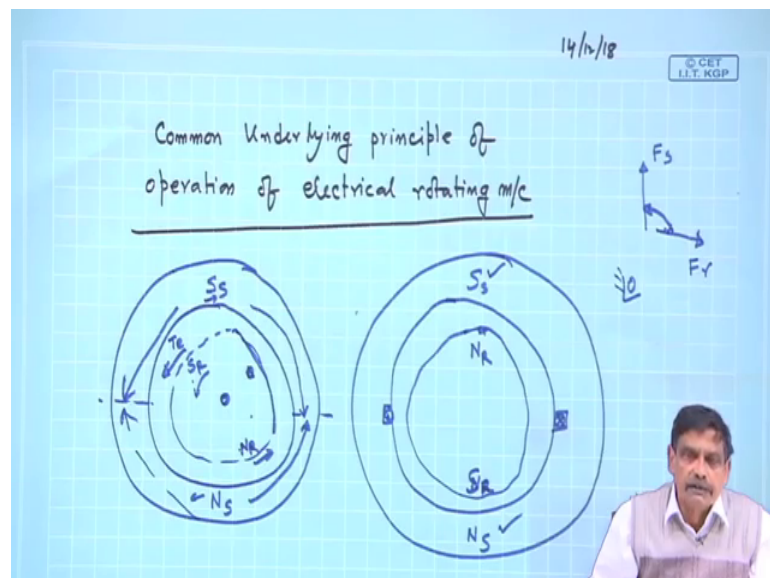 14/12/18
© CET
I.I.T. KGP
Common Underlying principle of
operation of electrical rotating m/c
Fs
Fr
Ss
Te
SR
NR
Ns
Ss ✓
NR
SR
Ns ✓